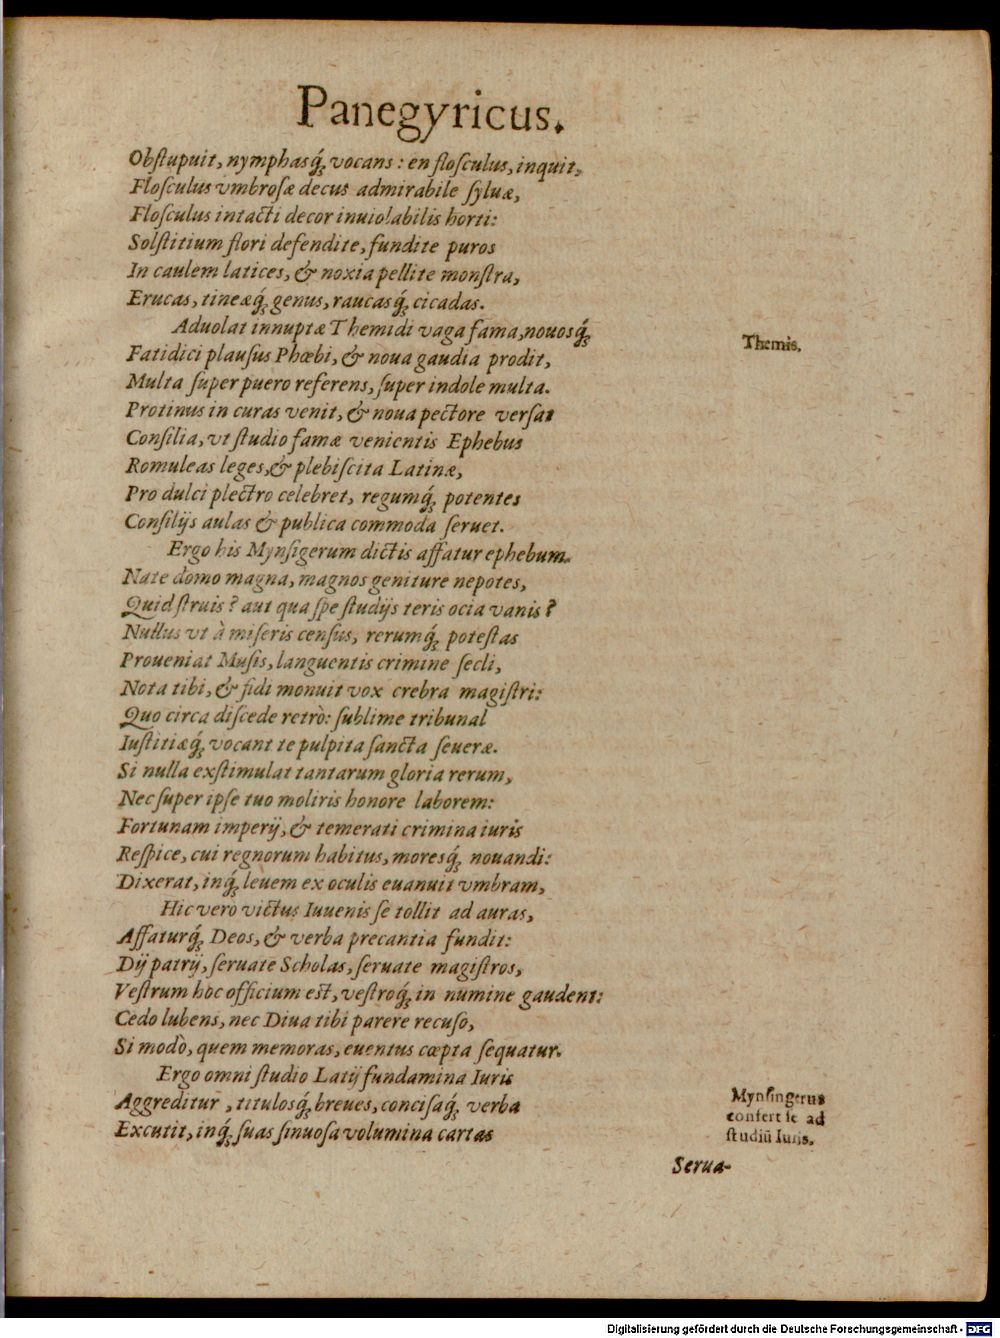 Panegyricus.
Obſtupuit, nymphasq́; vocans: en floſculus, inquit,
Floſculus vmbroſæ decus admirabile ſyluæ,
Floſculus intacti decor inuiolabilis horti:
Solſtitium flori defendite, fundite puros
In caulem latices, & noxia pellite monſtra,
Erucas, tineæq́; genus, raucasq́; cicadas.
Aduolat innuptæ Themidi vaga fama, nouosq́;
Themis.
Fatidici plauſus Phœbi, & noua gaudia prodit,
Multa ſuper puero referens, ſuper indole multa.
Protinus in curas venit, & noua pectore verſat
Conſilia, vt ſtudio famæ venientis Ephebus
Romuleas leges, & plebiſcita Latinæ,
Pro dulci plectro celebret, regumq́; potentes
Conſilijs aulas & publica commoda ſeruet.
Ergo his Mynſigerum dictis affatur ephebum.
Nate domo magna, magnos geniture nepotes,
Quid ſtruis? aut qua ſpe ſtudijs teris ocia vanis?
Nullus vt à miſeris cenſus, rerumq́; poteſtas
Proueniat Muſis, languentis crimine ſecli,
Nota tibi, & fidi monuit vox crebra magiſtri:
Quo circa diſcede retrò: ſublime tribunal
Iuſtitiæq́; vocant te pulpita ſancta ſeueræ.
Si nulla exſtimulat tantarum gloria rerum,
Nec ſuper ipſe tuo moliris honore laborem:
Fortunam imperij, & temerati crimina iuris
Reſpice, cui regnorum habitus, moresq́; nouandi:
Dixerat, inq́; leuem ex oculis euanuit vmbram,
Hic vero victus Iuuenis ſe tollit ad auras,
Affaturq́; Deos, & verba precantia fundit:
Dij patrij, ſeruate Scholas, ſeruate magiſtros,
Veſtrum hoc officium eſt, veſtroq́; in numine gaudent:
Cedo lubens, nec Diua tibi parere recuſo,
Si modò, quem memoras, euentus cœpta ſequatur.
Ergo omni ſtudio Latij fundamina Iuris
Aggreditur, titulosq́; breues, conciſaq́; verba
Excutit, inq́; ſuas ſinuoſa volumina cartas
Mynſingerus
confert ſe ad
ſtudiũ Iuris.
Serua-
Digitalisierung gefördert durch die Deutsche Forschungsgemeinschaft - DFG